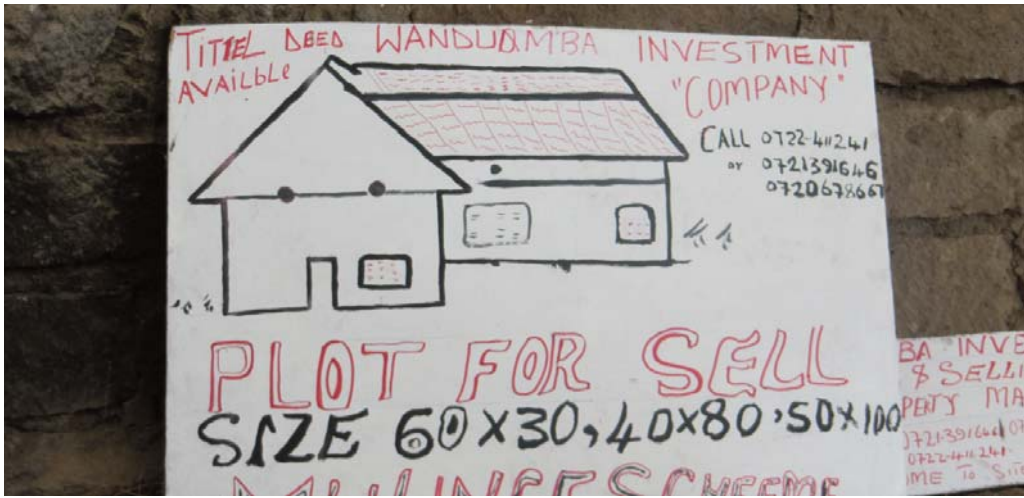 TITTEL DEED WANDUDMBA INVESTMENT
AVAILBLE "COMPANY"
CALL 0722-411241
or 0721391646
0720678667
PLOT FOR SELL
SIZE 60X30,40X80,50X100
SCHEEME
BA INVE
& SELLI
PERTY MA
0722-411-241-
IME To SIT